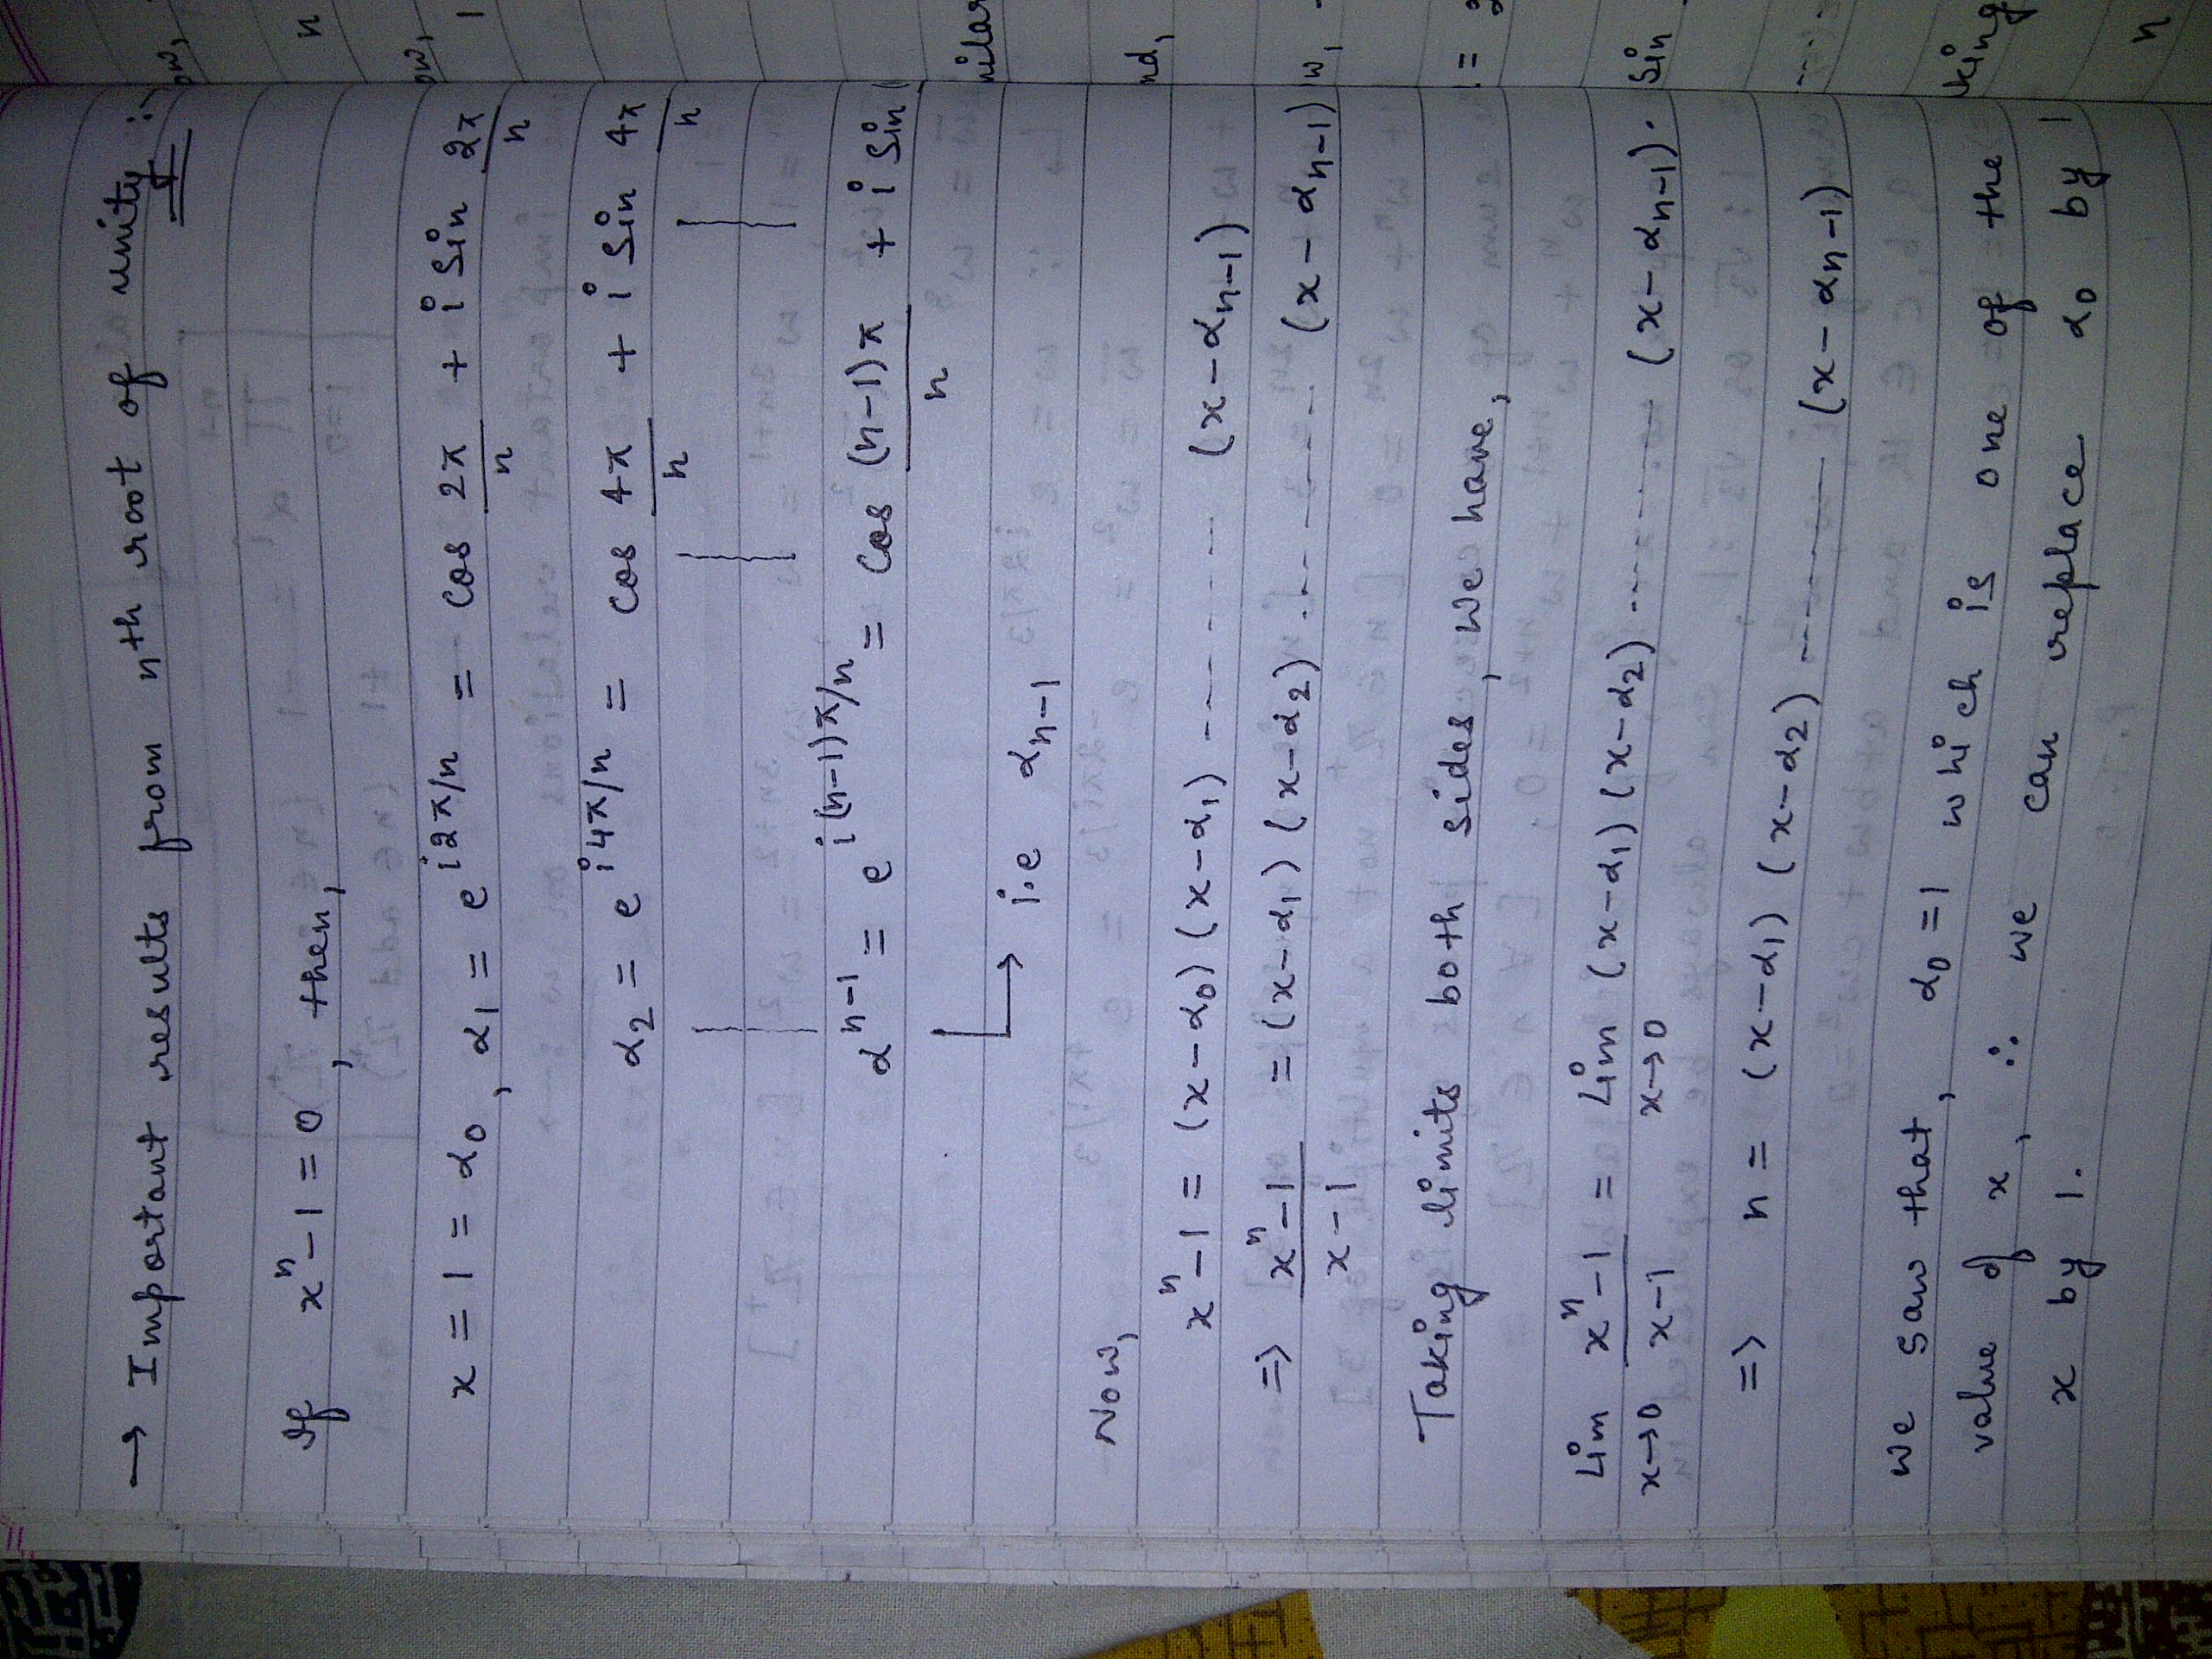 → Important results from nth root of unity :-
If xⁿ-1 = 0, then,
x = 1 = α₀, α₁ = e^(i2π/n) = cos 2π/n + i sin 2π/n
α₂ = e^(i4π/n) = cos 4π/n + i sin 4π/n
α^(n-1) = e^(i(n-1)π/n) = cos (n-1)π/n + i sin
↳ i.e α_(n-1)
Now,
xⁿ-1 = (x-α₀) (x-α₁) -------- (x-α_(n-1))
=> (xⁿ-1)/(x-1) = (x-α₁) (x-α₂) ---------- (x-α_(n-1))
Taking limits both sides, we have,
Lim x→0 (xⁿ-1)/(x-1) = Lim x→0 (x-α₁) (x-α₂) ---------- (x-α_(n-1)).
=> n = (x-α₁) (x-α₂) ---------- (x-α_(n-1))
we saw that, α₀ = 1 which is one of the
value of x, ∴ we can replace α₀ by 1
x by 1.